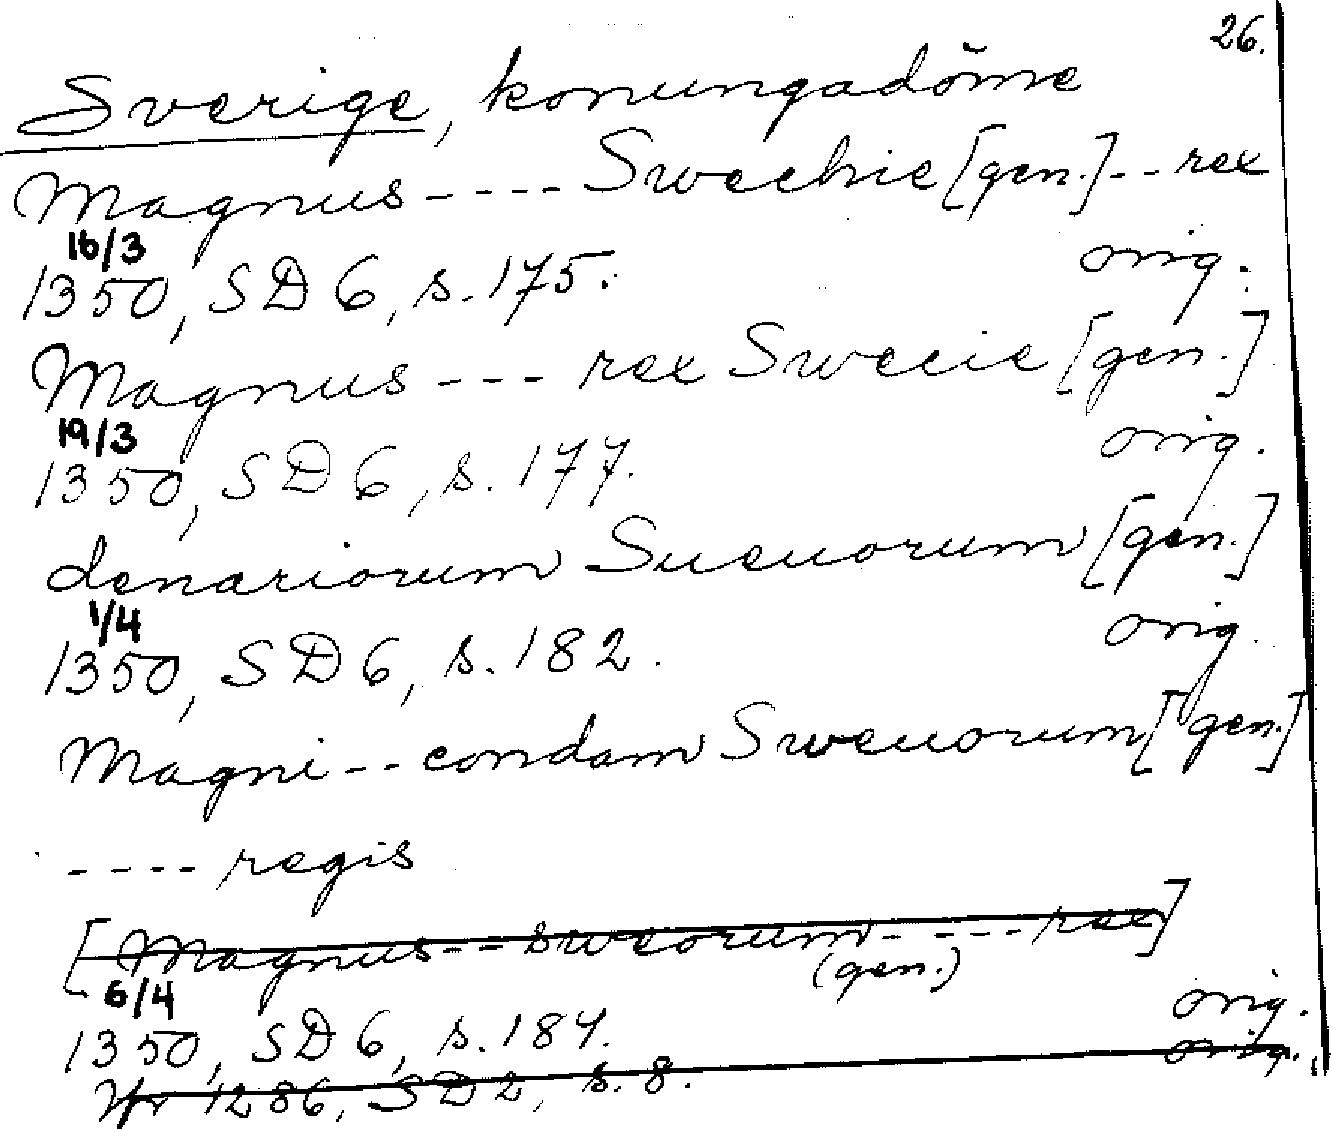 26.
Sverige, konungadöme
Magnus - - - - Swechie [gen.] - - rex
16/3
1350, SD 6, s. 175. orig.
Magnus - - - rex Swecie [gen.]
19/3
1350, SD 6, s. 177. orig.
denariorum Sueuorum [gen.]
1/4
1350, SD 6, s. 182. orig.
Magni - - condam Sweuorum [gen.]
- - - - regis
[Magnus - - sweorum - - - - rex]
(gen.)
6/4
1350, SD 6, s. 184. orig.
1286, SD 2, s. 8. orig.